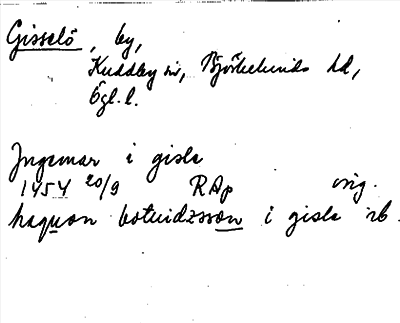 Gisselö, by,
Kuddby sn, Björkekinds hd,
Ögl. l.
Jngemar i gisle
1454 20/9 RAp orig.
haquon botuidzsson i gisle ib.